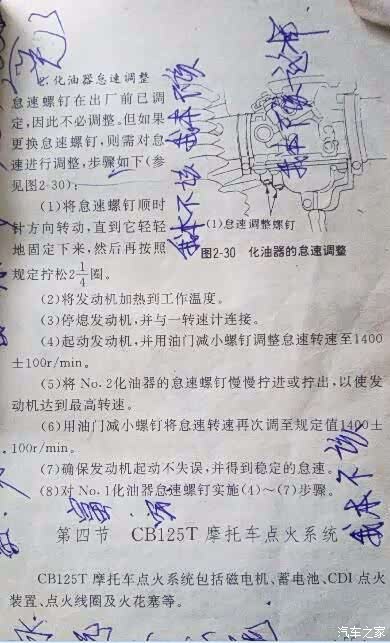 2. 化油器怠速调整
怠速螺钉在出厂前已调
定,因此不必调整。但如果
更换怠速螺钉,则需对怠
速进行调整,步骤如下(参
见图2-30):
(1)将怠速螺钉顺时
针方向转动,直到它轻轻
地固定下来,然后再按照
规定拧松2 1/4 圈。
(1)怠速调整螺钉
图2-30 化油器的怠速调整
(2)将发动机加热到工作温度。
(3)停熄发动机,并与一转速计连接。
(4)起动发动机,并用油门减小螺钉调整怠速转速至1400
±100r/min。
(5)将 No.2化油器的怠速螺钉慢慢拧进或拧出,以使发
动机达到最高转速。
(6)用油门减小螺钉将怠速转速再次调至规定值1400±
100r/min。
(7)确保发动机起动不失误,并得到稳定的怠速。
(8)对No.1化油器怠速螺钉实施(4)~(7)步骤。
第四节 CB125T 摩托车点火系统
CB125T 摩托车点火系统包括磁电机、蓄电池、CDI 点火
装置、点火线圈及火花塞等。
我本不该
我本不该
我本不该
汽车之家